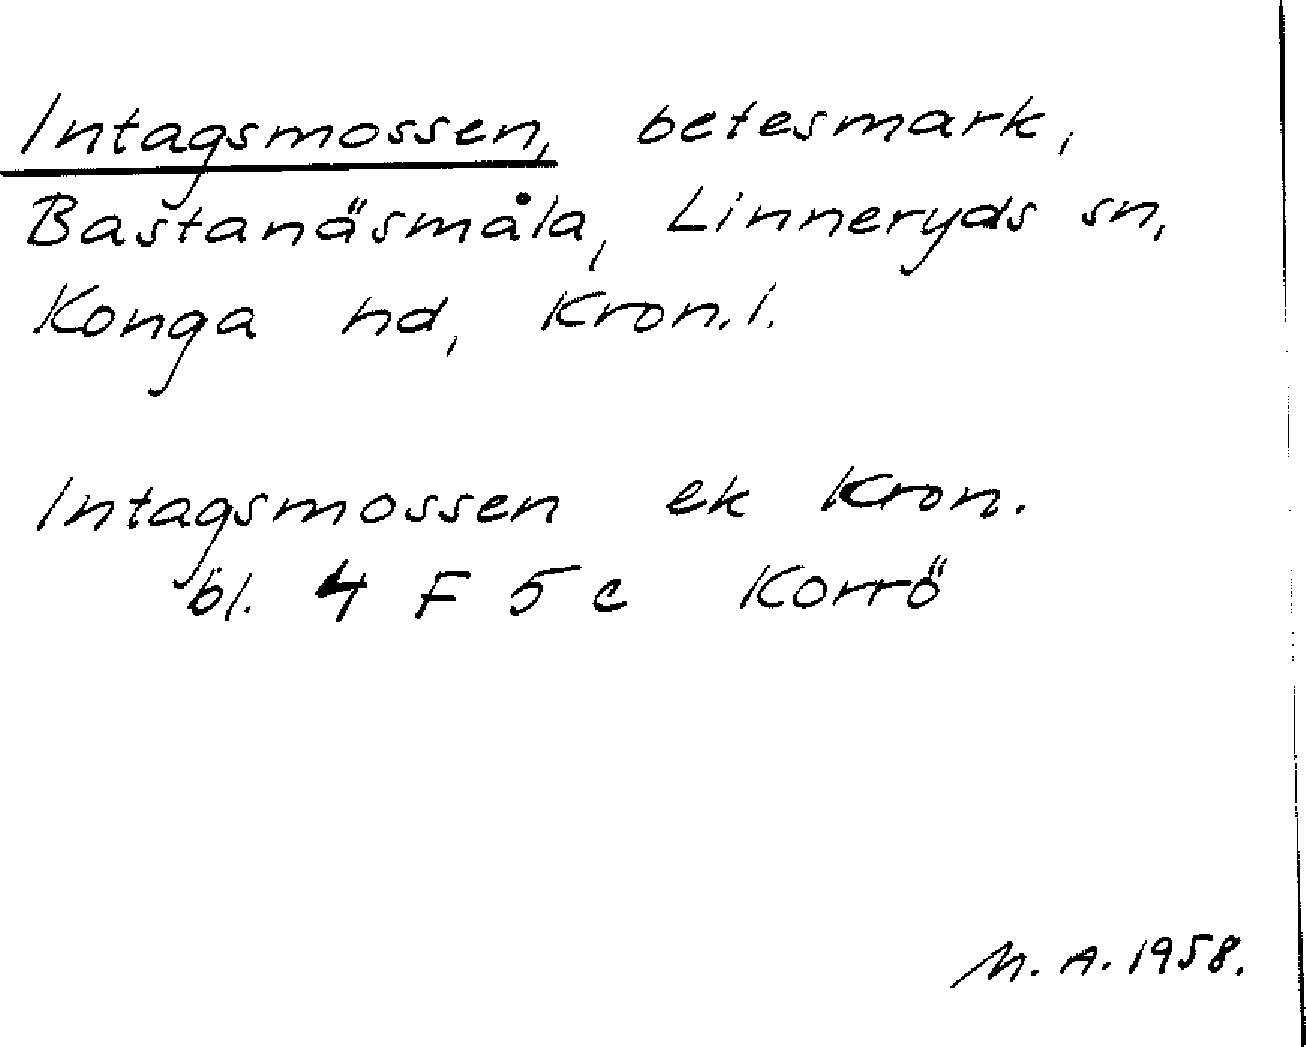 Intagsmossen, betesmark,
Bastanäsmåla, Linneryds sn,
Konga hd, Kron. l.
Intagsmossen ek Kron.
bl. 4 F 5 c Korrö
M. A. 1958.